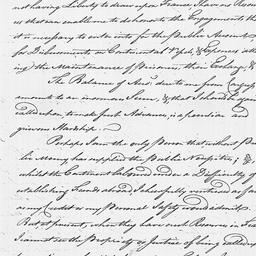 not having Liberty to draw upon France, I have no Resour
us that can enable me to do honor to the Engagements th
it is necessary to enter into for the Public Account
for Disbursements on Continental Vessels, & Expences atten
ing the Maintenance of Prisoners their Exchang, &
The Balance of Accts. due to me from Congress
amount to an immense Sum, & that I should be
called upon to make such Advances, is a peculiar and
grievous Hardship.
Perhaps I am the only Person that without Pub
lic Money has supplied the Public Necessities, &
whilst the Continent laboured under a Difficulty of
establishing Funds abroad I chearfully ventured as far
as my Credit or my Personal Safety would admit.
But at present, when they have such Resources in France
I cannot see the Propriety or Justice of being called